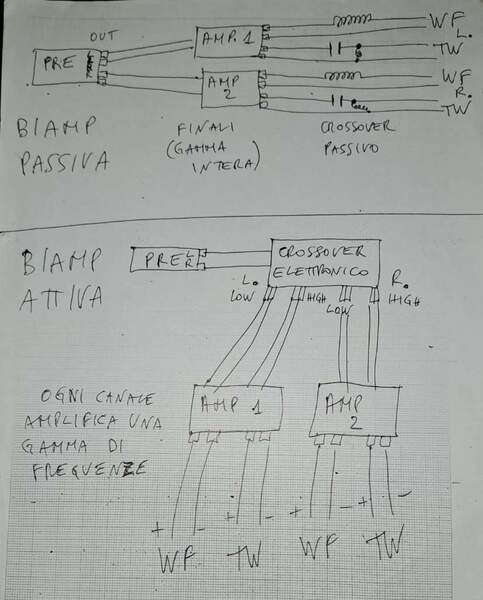 OUT
PRE
AMP. 1
AMP 2
WF
L.
TW
WF
R.
TW
BIAMP PASSIVA
FINALI
(GAMMA
INTERA)
CROSSOVER
PASSIVO
BIAMP
ATTIVA
PRE L
R
CROSSOVER
ELETTRONICO
L.
LOW
HIGH
LOW
R.
HIGH
OGNI CANALE
AMPLIFICA UNA
GAMMA DI
FREQUENZE
AMP 1
AMP 2
+ - + - + - + -
WF TW WF TW